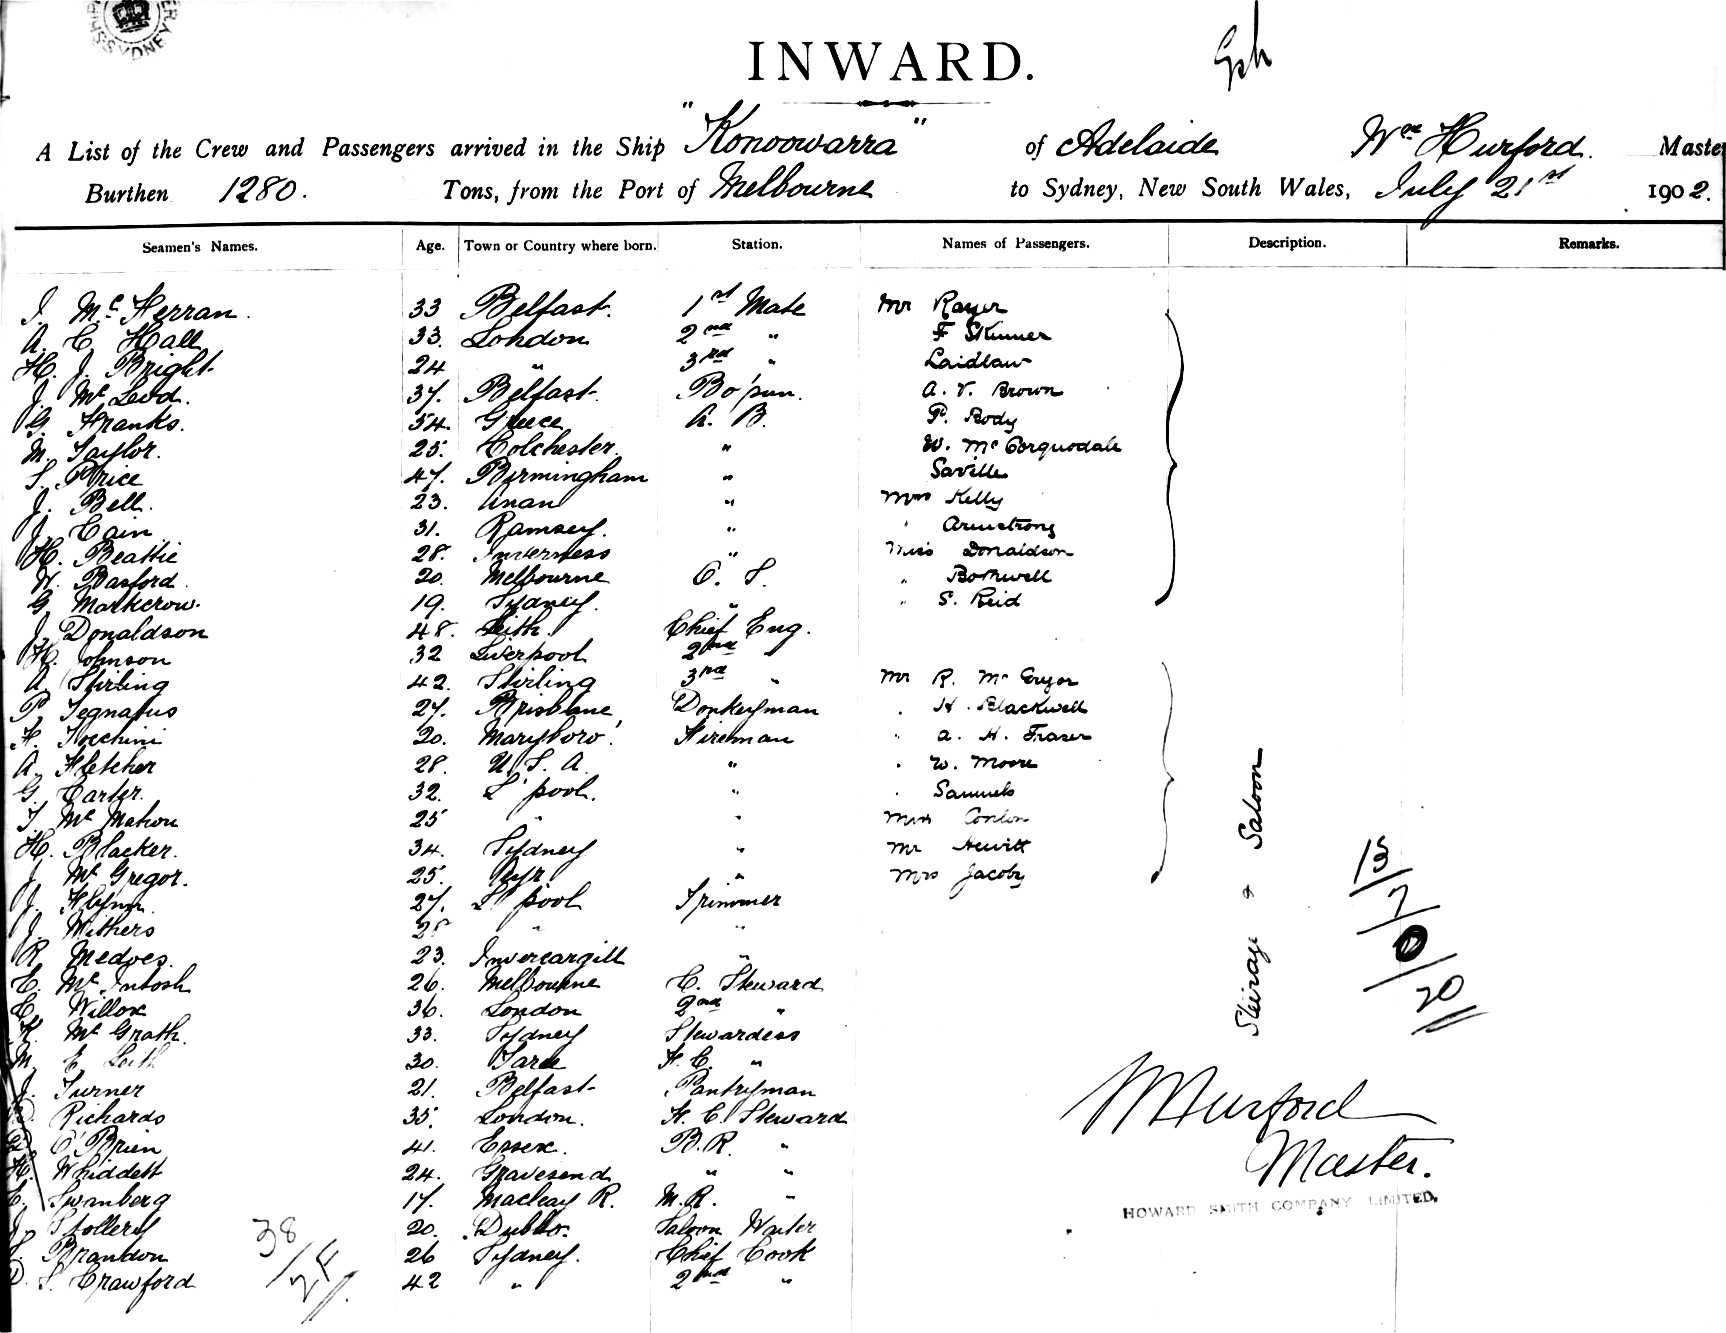 INWARD.
"Konoowarra"
A List of the Crew and Passengers arrived in the Ship of Adelaide Wm Hurford. Maste
Burthen 1280. Tons, from the Port of Melbourne to Sydney, New South Wales, July 21st 1902.
Seamen's Names. Age. Town or Country where born. Station. Names of Passengers. Description. Remarks.
Mc Kerran. 33 Belfast. 1st Mate Mr Rayer
A. C. Hall 33. London 2nd " F Skinner
H. J. Bright 24 " 3rd " Laidlaw
J. Mc Leod. 37. Belfast. Bo'sun. A. V. Brown
G. Franks. 54. Greece A. B. P. Body
M. Taylor. 25. Colchester. " W. Mc Corquodale
S. Price 47. Birmingham " Saville
J. Bell. 23. Anan " Mrs Kelly
J. Cain 31. Ramsey. " " Armstrong
H. Beattie 28. Inverness " Miss Donaldson
Basford 20. Melbourne O. S. " Bothwell
G. Markcrow. 19. Sydney. " " S. Reid
J. Donaldson 48. Leith. Chief Eng.
H. Johnson 32 Liverpool 2nd
A. Stirling 42. Stirling 3rd " Mr R. Mc
P. Tegnatius 27. Brisbane, Donkeyman " H. Blackwell
F. 20. Maryboro'. Fireman " A. H. Fraser
A. Fletcher 28. U. S. A. " " W. Moore
G. Carter. 32. L'pool. " " Samuels
T. Mc Mahon 25 " " Miss Conlon
H. Blacker. 34. Sydney " Mr Hewitt
J. Mc Gregor. 25. Ayr " Mrs Jacoby
J. Flynn. 27. L'pool Trimmer
J. Withers 28 " "
R. Medves. 23. Invercargill "
C. Mc Intosh 26. Melbourne C. Steward
C. Willox 36. London 2nd "
K. Mc Grath. 33. Sydney Stewardess
M. E. Leith 30. Taree F. C. "
J. Turner 21. Belfast Pantryman
Richards 35. London. F. C. Steward
O'Brien 41. Essex. B. R. "
H. Whiddett 24. Gravesend " "
C. Swanberg 17. Macleay R. M. R. "
J. Stollery 20. Dubbo. Saloon Waiter
Brandon 26 Sydney. Chief Cook
S. Crawford 42 " 2nd "
38
Steerage & Saloon
13
7
0
20
W Hurford
Master.
HOWARD SMITH COMPANY LIMITED.